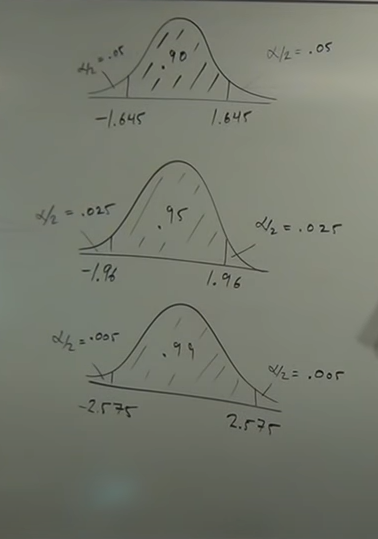 α/2 = .05 .90 α/2 = .05
-1.645 1.645
α/2 = .025 .95 α/2 = .025
-1.96 1.96
α/2 = .005 .99 α/2 = .005
-2.575 2.575